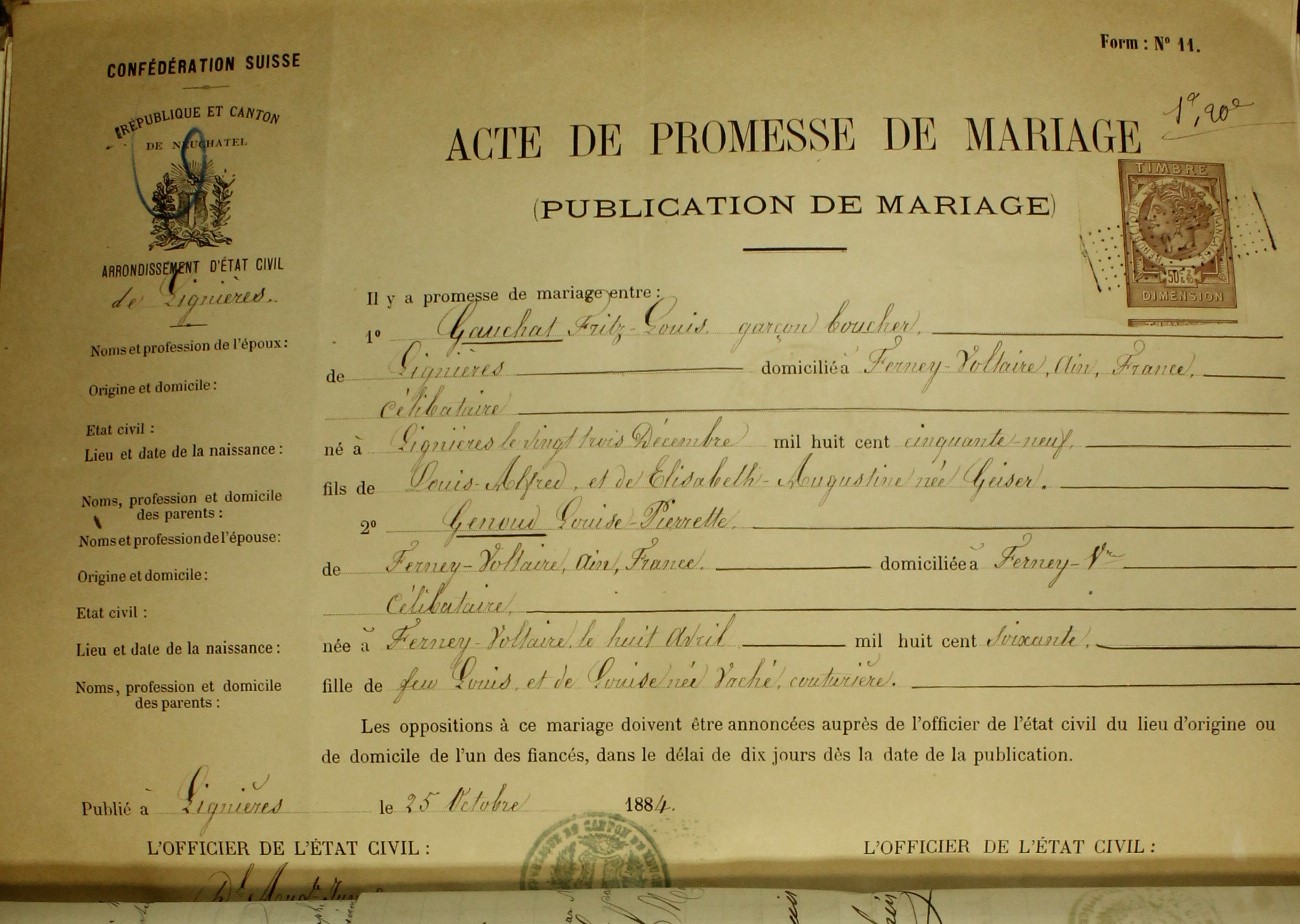 Form : Nº 11.
CONFÉDÉRATION SUISSE
RÉPUBLIQUE ET CANTON
DE NEUCHATEL
1ᵉ, 20ᶜ
ACTE DE PROMESSE DE MARIAGE
(PUBLICATION DE MARIAGE)
TIMBRE
RÉPUBLIQUE FRANÇAISE
50 C
DIMENSION
ARRONDISSEMENT D'ÉTAT CIVIL
de Lignières.
Il y a promesse de mariage entre :
Noms et profession de l'époux :
1º Gauchat Fritz-Louis, garçon boucher,
Origine et domicile :
de Lignières domicilié à Ferney-Voltaire, Ain, France,
Etat civil :
célibataire
Lieu et date de la naissance :
né à Lignières le vingt trois Décembre mil huit cent cinquante-neuf,
Noms, profession et domicile
des parents :
fils de Louis-Alfred, et de Elisabeth-Augustine née Geiser.
Noms et profession de l'épouse :
2º Genoud Louise-Pierrette,
Origine et domicile :
de Ferney-Voltaire, Ain, France. domiciliée à Ferney-Vʳᵉ
Etat civil :
célibataire,
Lieu et date de la naissance :
née à Ferney-Voltaire, le huit Avril mil huit cent soixante,
Noms, profession et domicile
des parents :
fille de feu Louis, et de Louise née Vaché, couturière.
Les oppositions à ce mariage doivent être annoncées auprès de l'officier de l'état civil du lieu d'origine ou
de domicile de l'un des fiancés, dans le délai de dix jours dès la date de la publication.
Publié à Lignières le 25 Octobre 1884.
L'OFFICIER DE L'ÉTAT CIVIL : L'OFFICIER DE L'ÉTAT CIVIL :